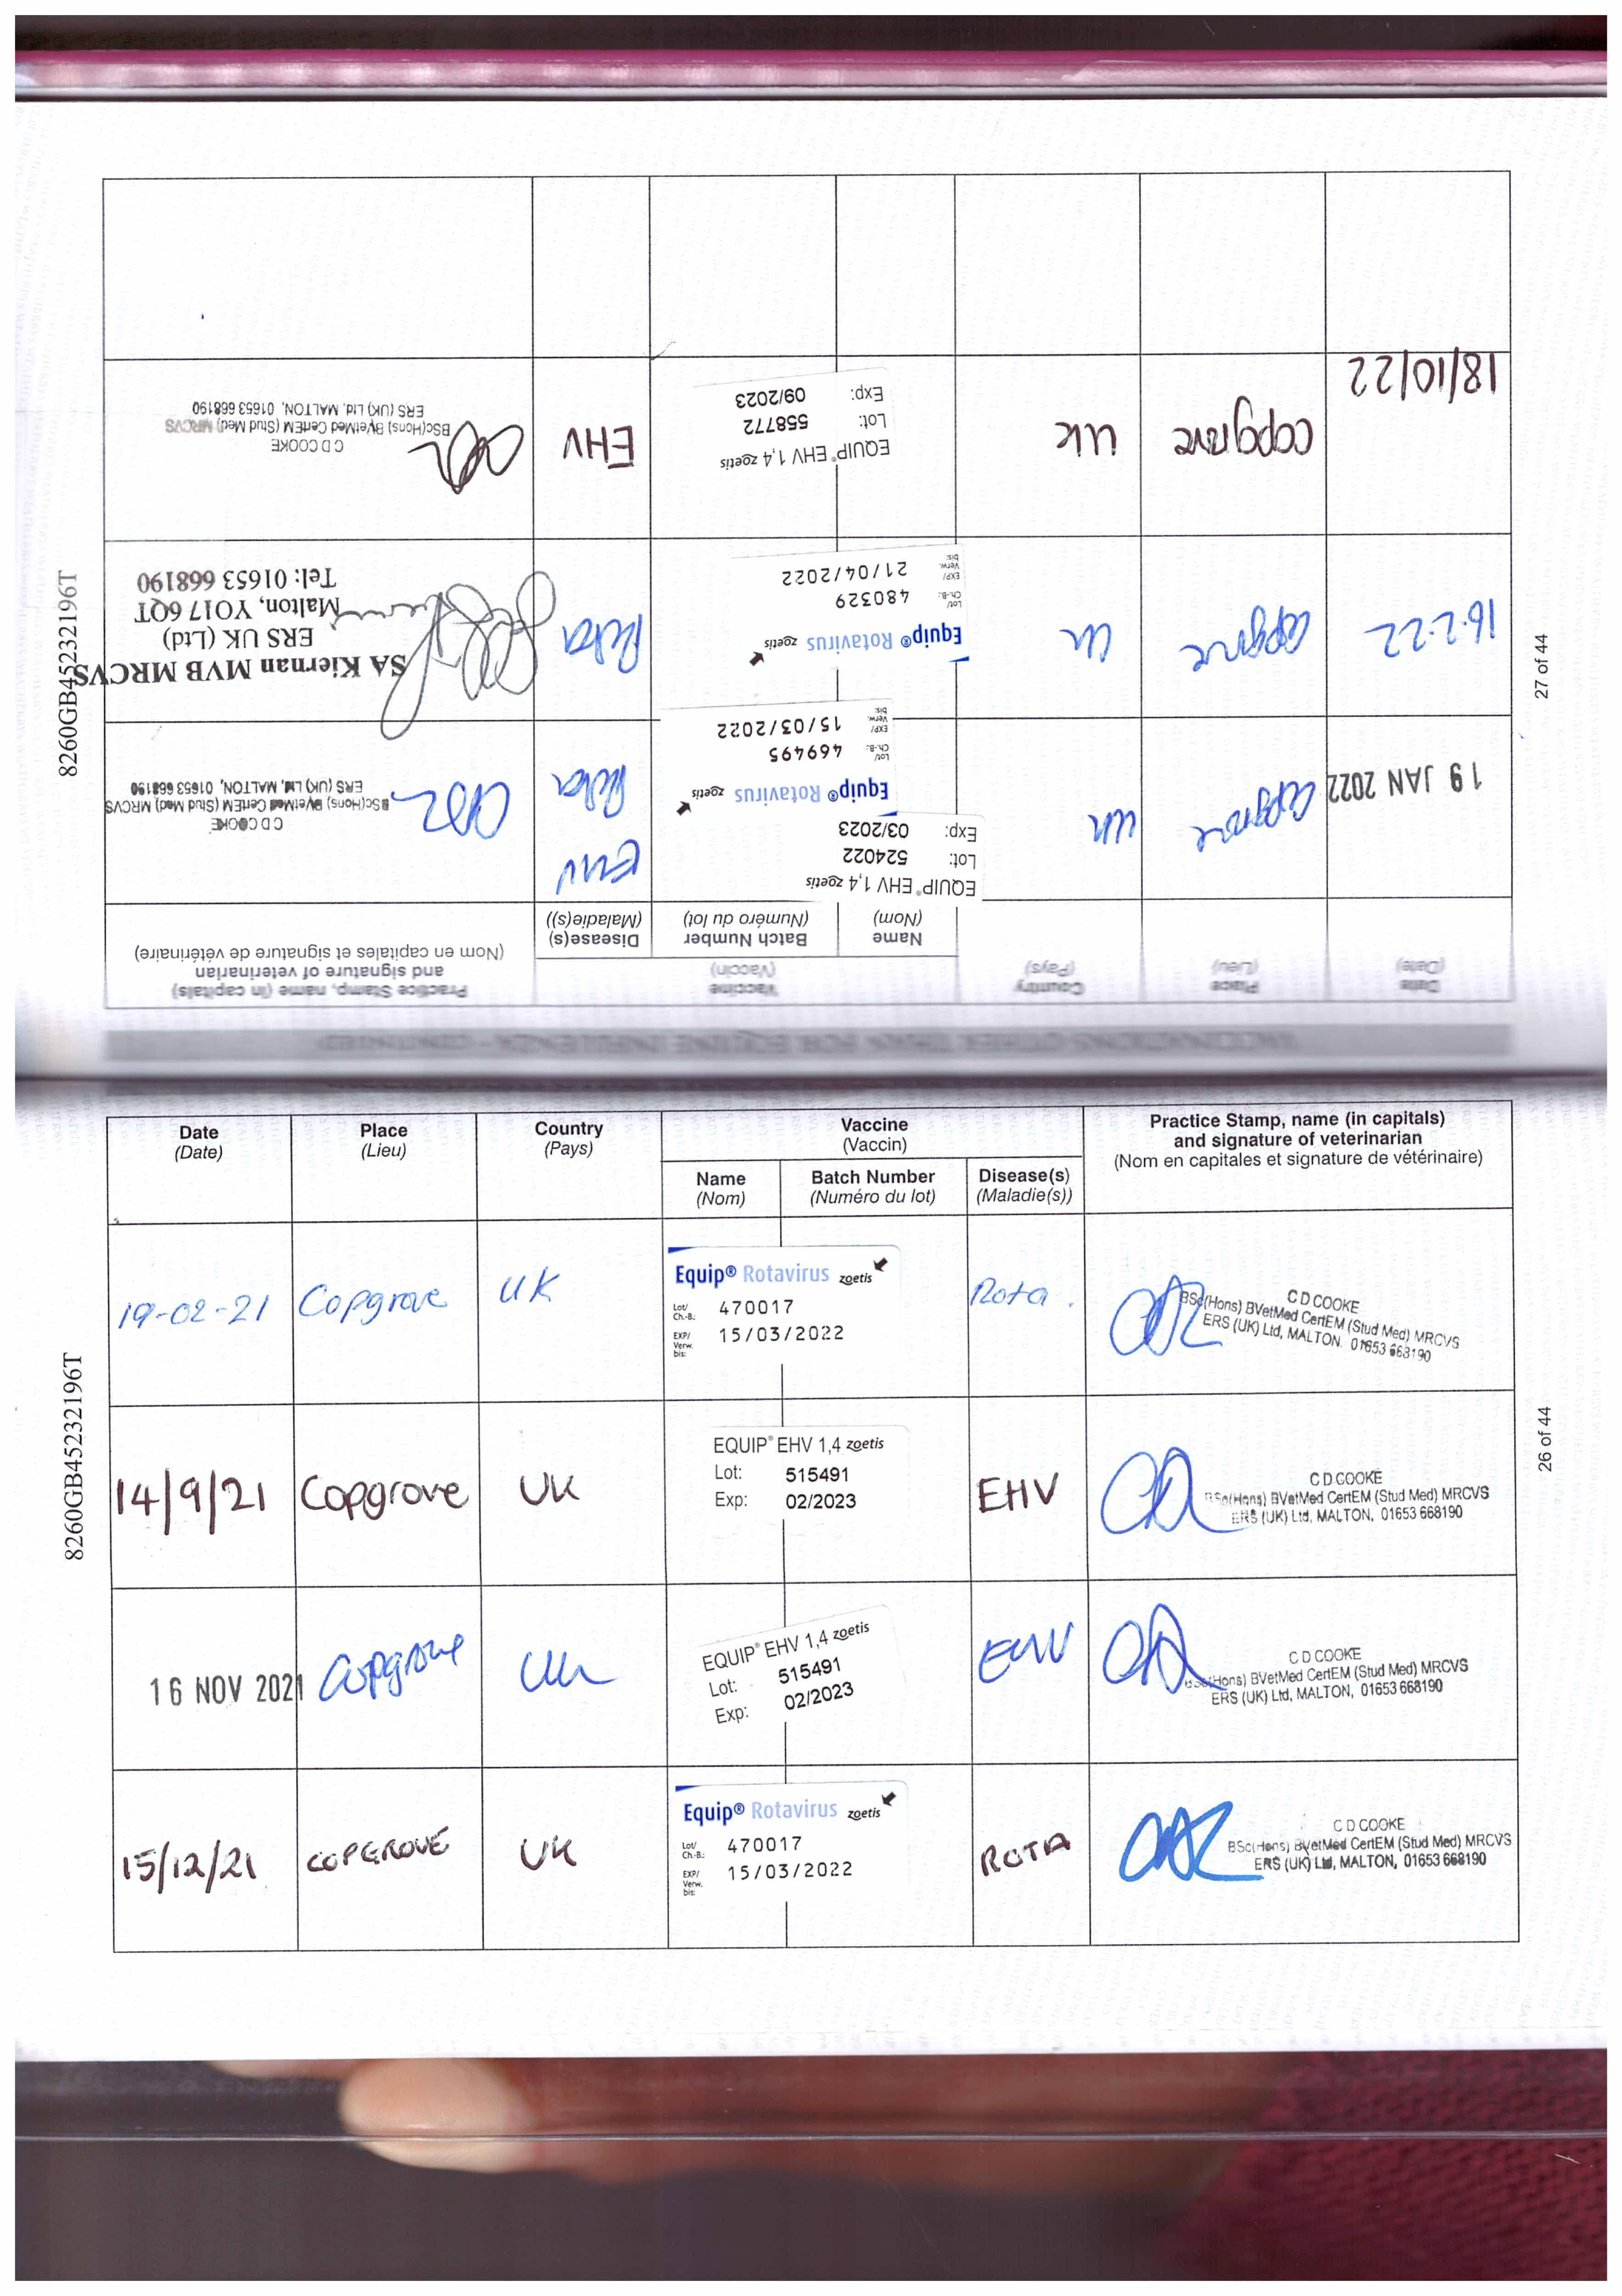 8260GB45232196T
27 of 44
VACCINATIONS OTHER THAN FOR EQUINE INFLUENZA - CONTINUED
Date
(Date)
Place
(Lieu)
Country
(Pays)
Vaccine
(Vaccin)
Name
(Nom)
Batch Number
(Numéro du lot)
Disease(s)
(Maladie(s))
Practice Stamp, name (in capitals)
and signature of veterinarian
(Nom en capitales et signature de vétérinaire)
19 JAN 2022
Copgrove
UK
EQUIP® EHV 1,4 zoetis
Lot: 524022
Exp: 03/2023
Equip® Rotavirus zoetis
Lot/ Ch.-B.: 469495
EXP/ Verw. bis: 15/03/2022
EHV
Rota
C D COOKE
BSc(Hons) BVetMed CertEM (Stud Med) MRCVS
ERS (UK) Ltd, MALTON, 01653 668190
16.2.22
Copgrove
UK
Equip® Rotavirus zoetis
Lot/ Ch.-B.: 480329
EXP/ Verw. bis: 21/04/2022
Rota
SA Kiernan MVB MRCVS
ERS UK (Ltd)
Malton, YO17 6QT
Tel: 01653 668190
18/10/22
Copgrove
UK
EQUIP® EHV 1,4 zoetis
Lot: 558772
Exp: 09/2023
EHV
C D COOKE
BSc(Hons) BVetMed CertEM (Stud Med) MRCVS
ERS (UK) Ltd, MALTON, 01653 668190
8260GB45232196T
26 of 44
Date
(Date)
Place
(Lieu)
Country
(Pays)
Vaccine
(Vaccin)
Name
(Nom)
Batch Number
(Numéro du lot)
Disease(s)
(Maladie(s))
Practice Stamp, name (in capitals)
and signature of veterinarian
(Nom en capitales et signature de vétérinaire)
19-02-21
Copgrove
UK
Equip® Rotavirus zoetis
Lot/ Ch.-B.: 470017
EXP/ Verw. bis: 15/03/2022
Rota.
C D COOKE
BSc(Hons) BVetMed CertEM (Stud Med) MRCVS
ERS (UK) Ltd, MALTON. 01653 668190
14/9/21
Copgrove
UK
EQUIP® EHV 1,4 zoetis
Lot: 515491
Exp: 02/2023
EHV
C D COOKE
BSc(Hons) BVetMed CertEM (Stud Med) MRCVS
ERS (UK) Ltd, MALTON, 01653 668190
16 NOV 2021
Copgrove
UK
EQUIP® EHV 1,4 zoetis
Lot: 515491
Exp: 02/2023
EHV
C D COOKE
BSc(Hons) BVetMed CertEM (Stud Med) MRCVS
ERS (UK) Ltd, MALTON, 01653 668190
15/12/21
COPGROVE
UK
Equip® Rotavirus zoetis
Lot/ Ch.-B.: 470017
EXP/ Verw. bis: 15/03/2022
ROTA
C D COOKE
BSc(Hons) BVetMed CertEM (Stud Med) MRCVS
ERS (UK) Ltd, MALTON, 01653 668190